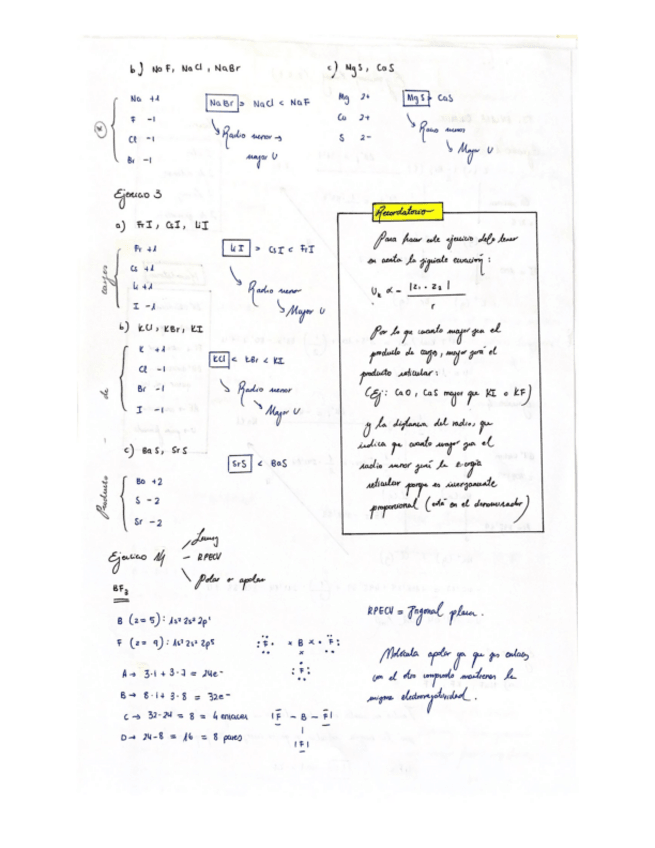 b) NaF, NaCl, NaBr
c) MgS, CaS
Na +1
F -1
Cl -1
Br -1
NaBr > NaCl < NaF
Radio menor →
mayor U
Mg 2+
Ca 2+
S 2-
MgS > CaS
Radio menor
Mayor U
Ejercicio 3
a) FrI, CsI, LiI
cargas
Fr +1
Cs +1
Li +1
I -1
LiI > CsI < FrI
Radio menor
Mayor U
b) KCl, KBr, KI
de
K +1
Cl -1
Br -1
I -1
KCl < KBr < KI
Radio menor
Mayor U
c) BaS, SrS
Producto -
Ba +2
S -2
Sr -2
SrS < BaS
Recordatorio
Para hacer este ejercicio debo tener
en cuenta la siguiente ecuación:
|z₁ · z₂|
r
Por lo que cuanto mayor sea el
producto de carga, mayor será el
producto reticular:
(Ej: CaO, CaS mayor que KI o KF)
y la distancia del radio, que
indica que cuanto mayor sea el
radio menor será la energía
reticular porque es inversamente
proporcional (está en el denominador)
Ejercicio 14
Lewis
- RPECV
Polar or apolar
BF₃
B (z = 5): 1s² 2s² 2p¹
F (z = 9): 1s² 2s² 2p5
A → 3·1 + 3·7 = 24e-
B → 8·1 + 3·8 = 32e-
C → 32-24 = 8 = 4 enlaces
D → 24-8 = 16 = 8 pares
F × B × F
F
|F - B - F|
|
|F|
RPECV = Trigonal plana.
Molécula apolar ya que sus enlaces
con el otro compuesto mantienen la
misma electronegatividad.